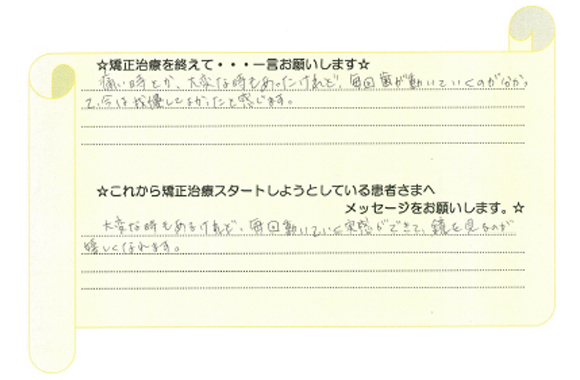 ☆矯正治療を終えて・・・一言お願いします☆
痛い時とか、大変な時もあったけれど、毎回歯が動いていくのが分かっ
て、今は我慢してよかったと感じます。
☆これから矯正治療スタートしようとしている患者さまへ
メッセージをお願いします。☆
大変な時もあるけれど、毎回動いていく実感ができて、鏡を見るのが
嬉しくなれます。